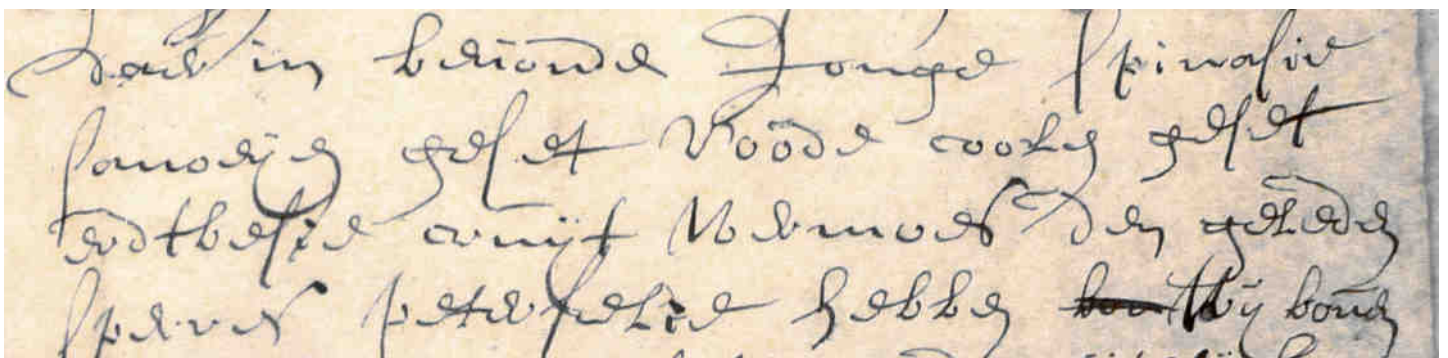 daer in bevonde Jonge spinasie
savoeijen geset Roode coolen geset
erdtbesie cruijt Wermoes den geleden
spervs peterselie hebben wij bouen